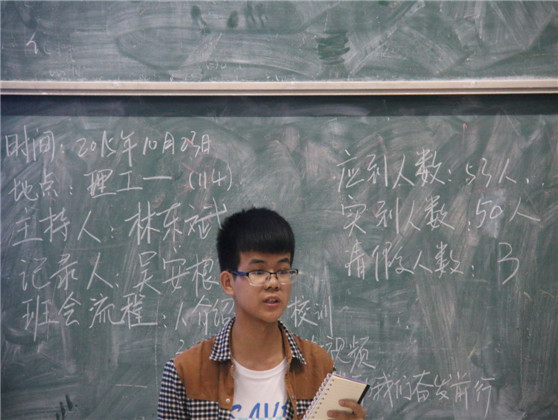 时间：2015年10月23日
地点：理工一（114）
主持人：林东斌
记录人：吴安根
班会流程：1、介绍 校训
视频
我们奋发前行
应到人数：53人
实到人数：50人
请假人数：3